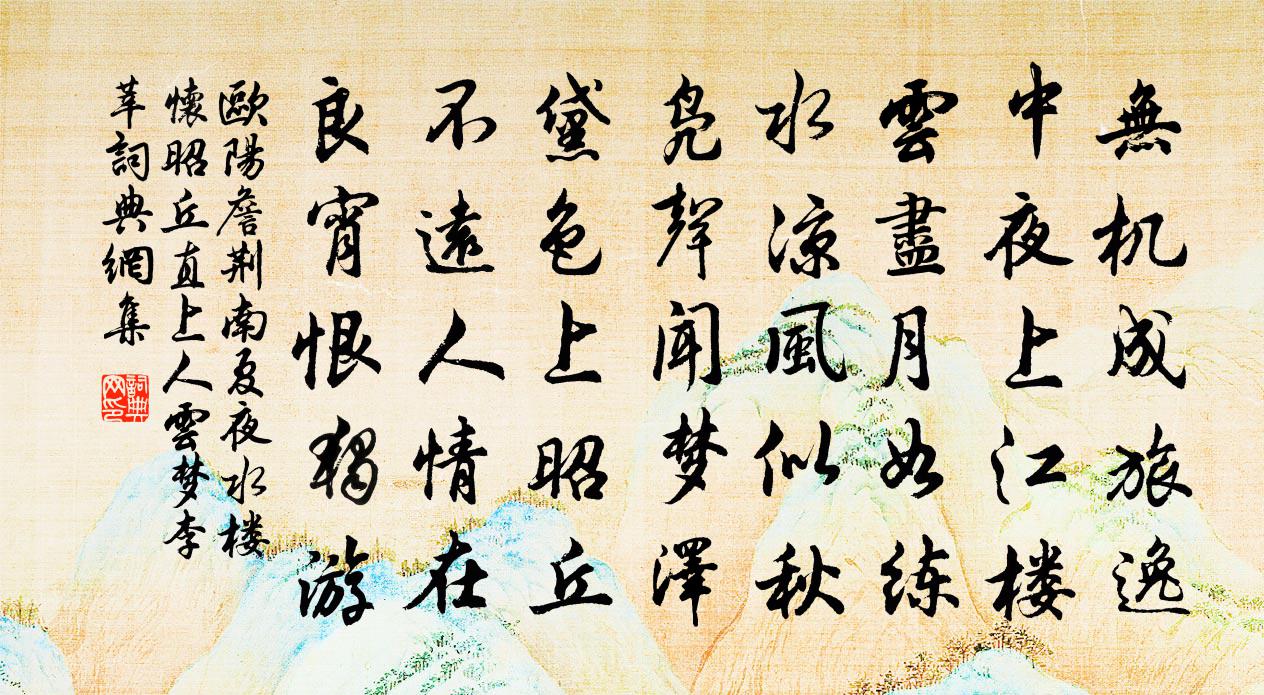 無机成旅逸
中夜上江楼
雲盡月如练
水凉風似秋
凫聲闻梦澤
黛色上昭丘
不遠人情在
良宵恨独游
歐陽詹荆南夏夜水楼
懷昭丘直上人雲梦李
莘詞典網集
詞典网印